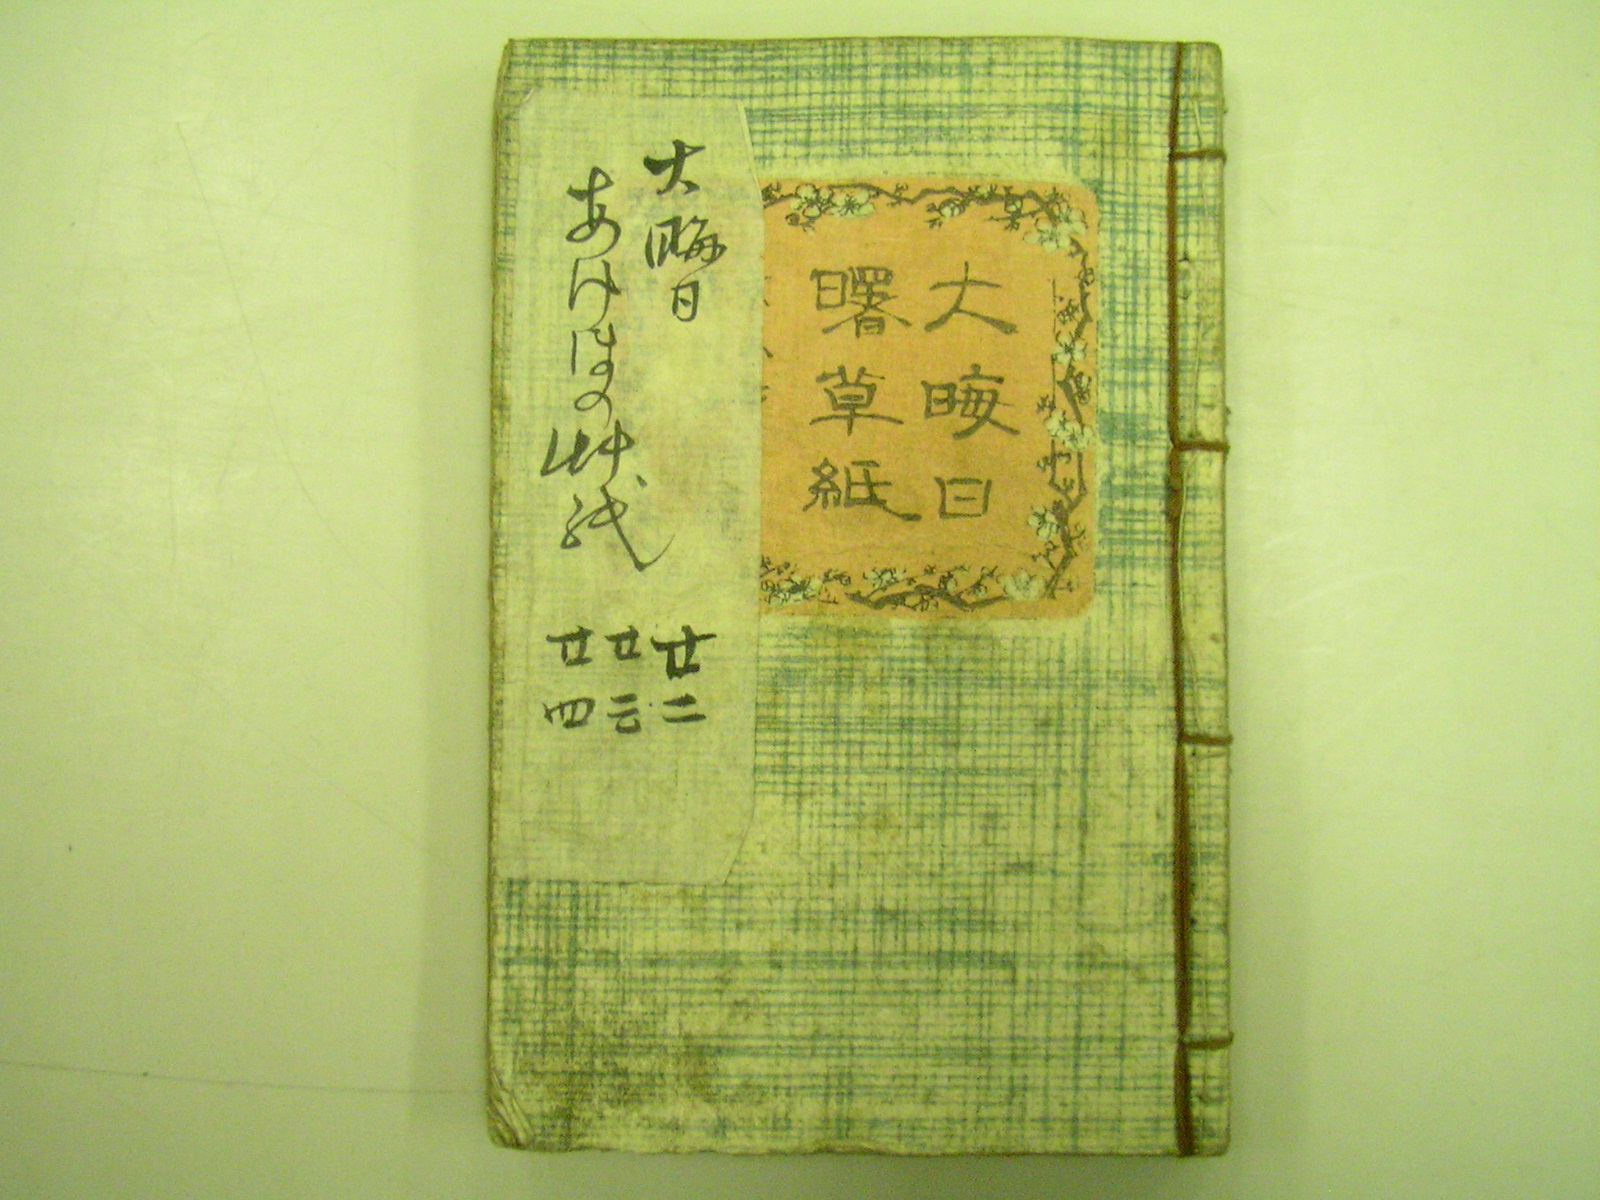 大晦日
曙草紙
大晦日
あけほの
艸紙
廿二
廿三
廿四